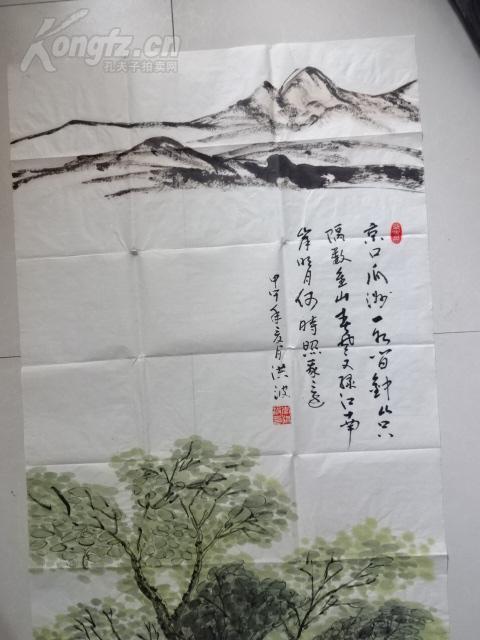 Kongfz.cn
孔夫子拍卖网
京口瓜洲一水间鈡山只
隔数重山春风又绿江南
岸明月何時照我还
甲午年夏月洪波